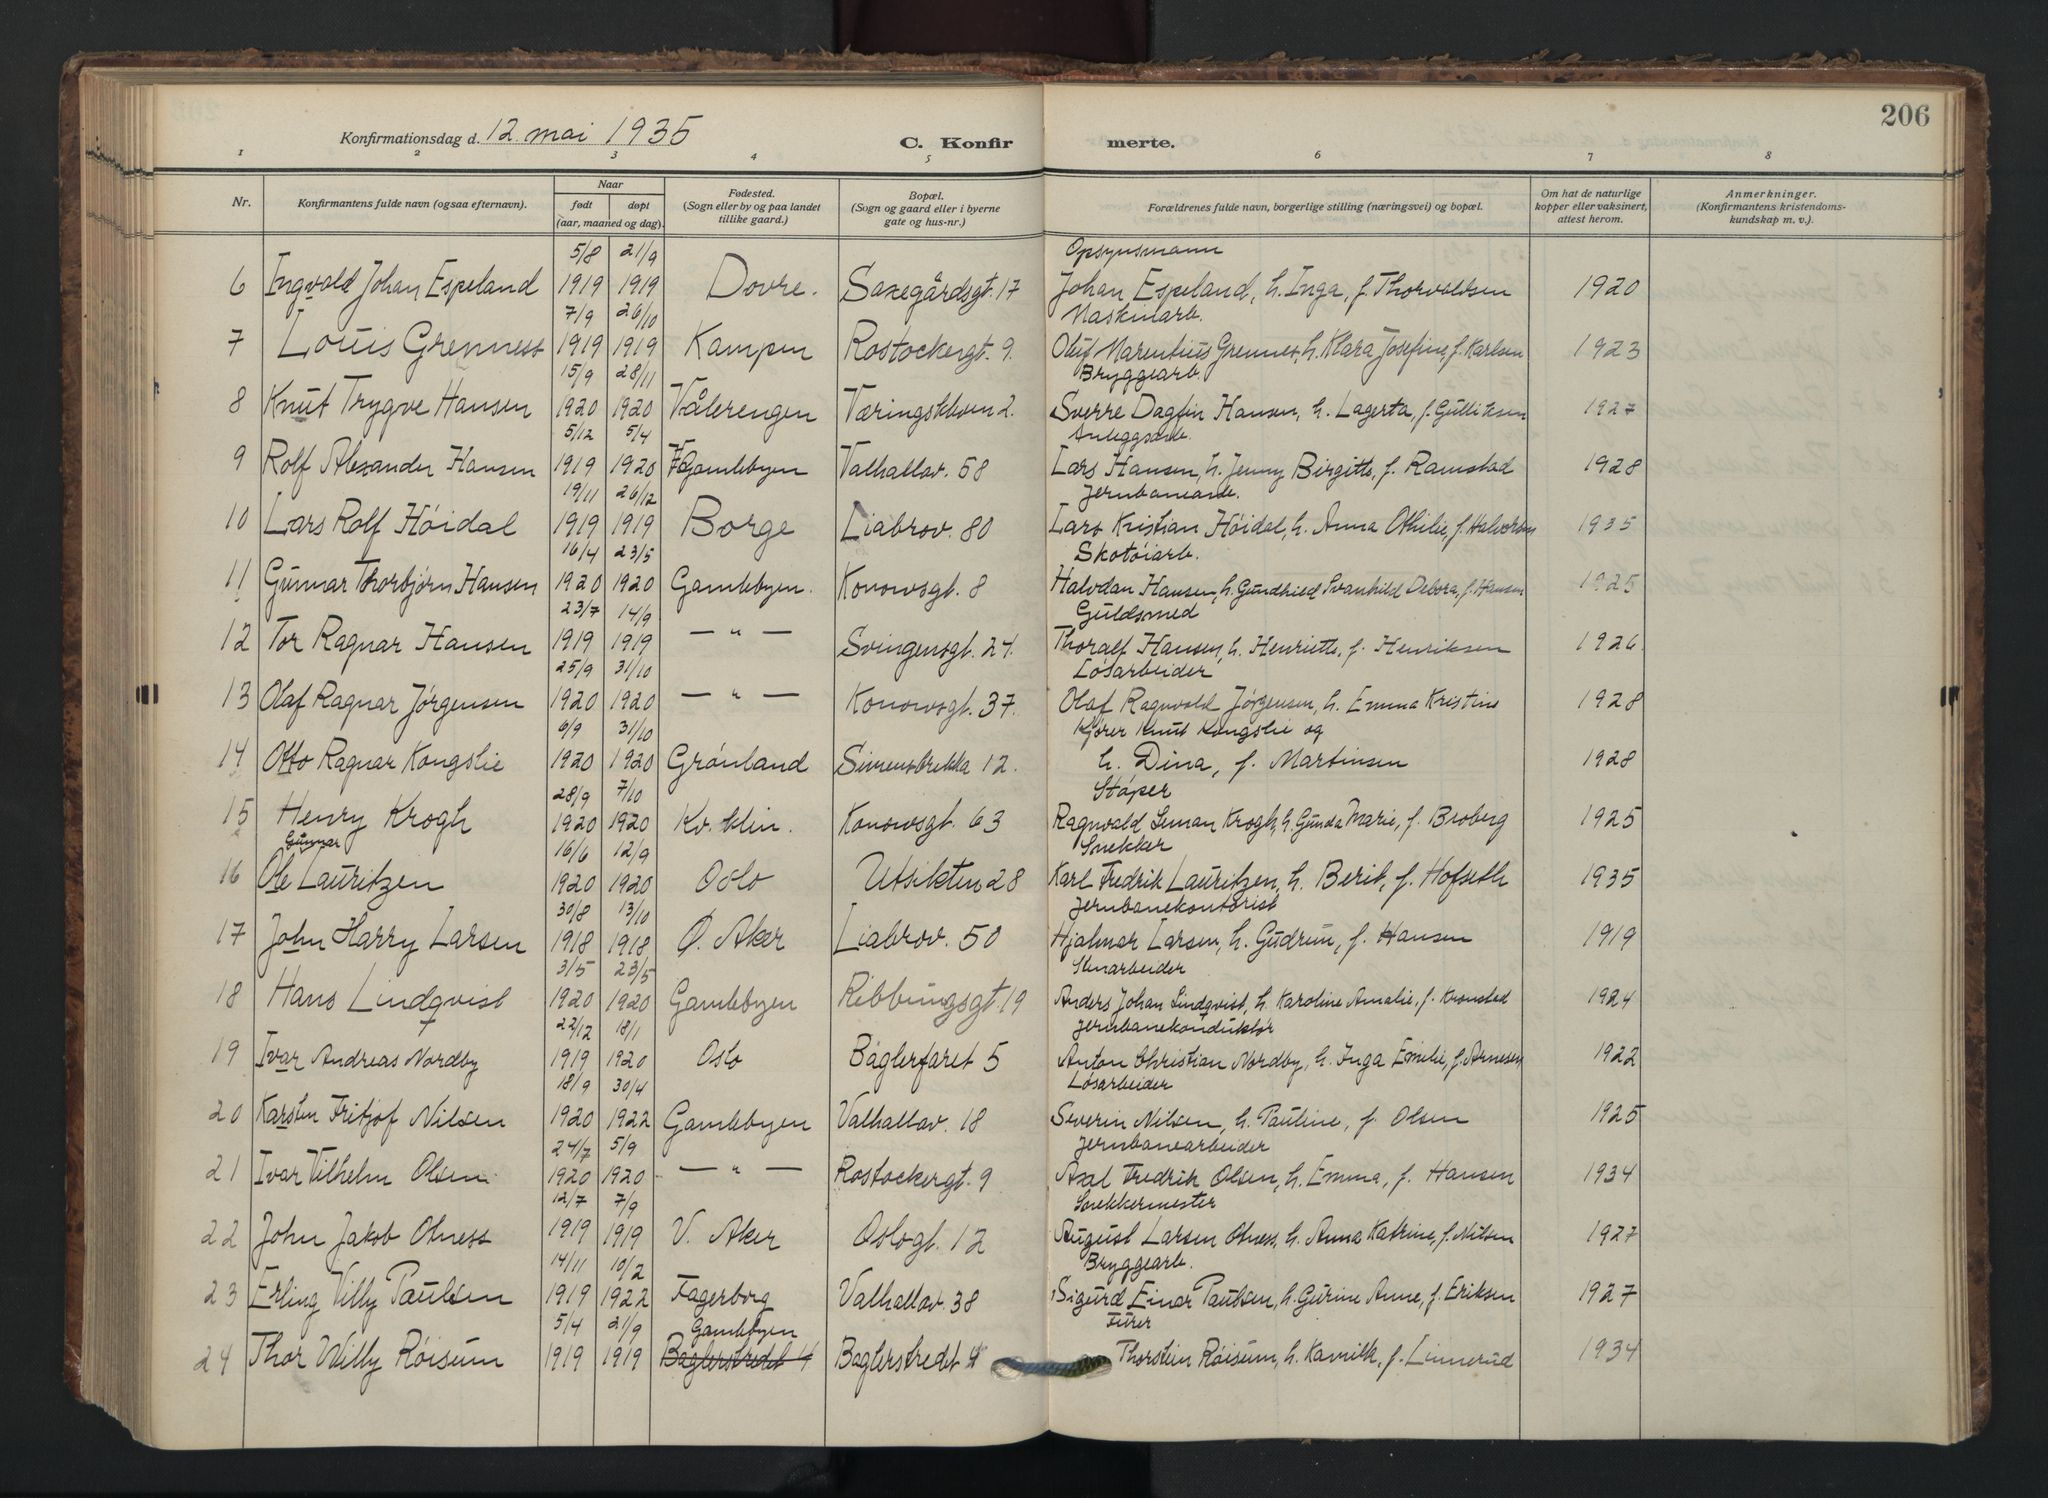 206
Konfirmationsdag d. 12 mai 1935
C. Konfir merte.
1 2 3 4 5 6 7 8
Nr.
Konfirmantens fulde navn (ogsaa efternavn).
Naar
født døpt
(aar, maaned og dag).
Fødested.
(Sogn eller by og paa landet
tillike gaard.)
Bopæl.
(Sogn og gaard eller i byerne
gate og hus-nr.)
Forældrenes fulde navn, borgerlige stilling (næringsvei) og bopæl.
Om hat de naturlige
kopper eller vaksinert,
attest herom.
Anmerkninger.
(Konfirmantens kristendoms-
kundskap m. v.).
5/8 21/9 Opsynsmann
6 Ingvald Johan Espeland 1919 1919 Dovre. Saxegårdsgt. 17 Johan Espeland, h. Inga, f. Thorvaldsen 1920
7/9 26/10 Maskinarb.
7 Louis Grenness 1919 1919 Kampen Rostockergt. 9. Oluf Marentius Grennes, h. Klara Josefine, f. Karlsen 1923
15/9 28/11 Bryggearb.
8 Knut Trygve Hansen 1920 1920 Vålerengen Væringskleven 2. Sverre Dagfin Hansen, h. Lagerta, f. Gulliksen 1927
5/12 5/4 Anleggsarb.
9 Rolf Alexander Hansen 1919 1920 Gamlebyen Valhallav. 58 Lars Hansen, h. Jenny Birgitte, f. Ramstad 1928
19/11 26/12 Jernbanearb.
10 Lars Rolf Höidal 1919 1919 Borge Liabrov. 80 Lars Kristian Höidal, h. Anna Othilie, f. Halvorsen 1935
16/4 23/5 Skotöiarb.
11 Gunnar Thorbjørn Hansen 1920 1920 Gamlebyen. Konowsgt. 8 Halvdan Hansen, h. Gundhild Svanhild Debora, f. Hansen 1925
23/7 14/9 Guldsmed
12 Tor Ragnar Hansen 1919 1919 — " — Svingensgt. 24. Thoralf Hansen, h. Henriette, f. Henriksen 1926
25/9 31/10 Løsarbeider
13 Olaf Ragnar Jørgensen 1920 1920 — " — Konowsgt. 37. Olaf Ragnvald Jørgensen, h. Emma Kristine 1928
6/9 31/10 Kjører Knut Kongslie og
14 Otto Ragnar Kongslie 1920 1920 Grønland Simensbrekka 12. h. Dina, f. Martinsen 1928
28/9 7/10 Støper
15 Henry Krogh 1920 1920 Kv. klin. Konowsgt. 63 Ragnvald Leman Krogh, h. Gunda Marie, f. Broberg 1925
Gunnar 16/6 12/9 Snekker
16 Ole Lauritzen 1920 1920 Oslo Utsikten 28 Karl Fredrik Lauritzen, h. Berit, f. Hofseth 1935
30/8 13/10 Jernbanekontorist
17 John Harry Larsen 1918 1918 Ø. Aker Liabrov. 50 Hjalmar Larsen, h. Gudrun, f. Hansen 1919
3/5 23/5 Stenarbeider
18 Hans Lindqvist 1920 1920 Gamlebyen Ribbungsgt 19 Anders Johan Lindqvist, h. Karoline Amalie, f. Kronstad 1924
22/12 18/1 Jernbanekonduktør
19 Ivar Andreas Nordby 1919 1920 Oslo Baglerfaret 5 Anton Christian Nordby, h. Inga Emelie, f. Arnesen 1922
18/9 30/4 Løsarbeider
20 Karsten Fritjof Nilsen 1920 1922 Gamlebyen Valhallav. 18 Severin Nilsen, h. Pauline, f. Olsen 1925
24/7 5/9 Jernbanearbeider
21 Ivar Vilhelm Olsen 1920 1920 — " — Rostockergt. 9 Axel Fredrik Olsen, h. Emma, f. Hansen 1934
12/7 7/9 Snekkermester
22 John Jakob Olness 1919 1919 V. Aker Oslogt. 12 August Larsen Olness, h. Anna Katrine, f. Nilsen 1927
14/11 10/2 Bryggearb.
23 Erling Villy Paulsen 1919 1922 Fagerborg Valhallav. 38 Sigurd Einar Paulsen, h. Gurine Anne, f. Eriksen 1927
5/4 21/9 Gamlebyen Furer
24 Thor Willy Röisum 1919 1919 Baglerstredet 4 Baglerstredet 4 Thorstein Röisum, h. Kamilla, f. Linnerud 1934